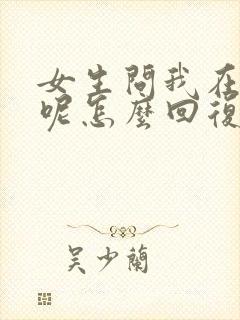 女生問我在
呢怎麼回復
吴少蘭